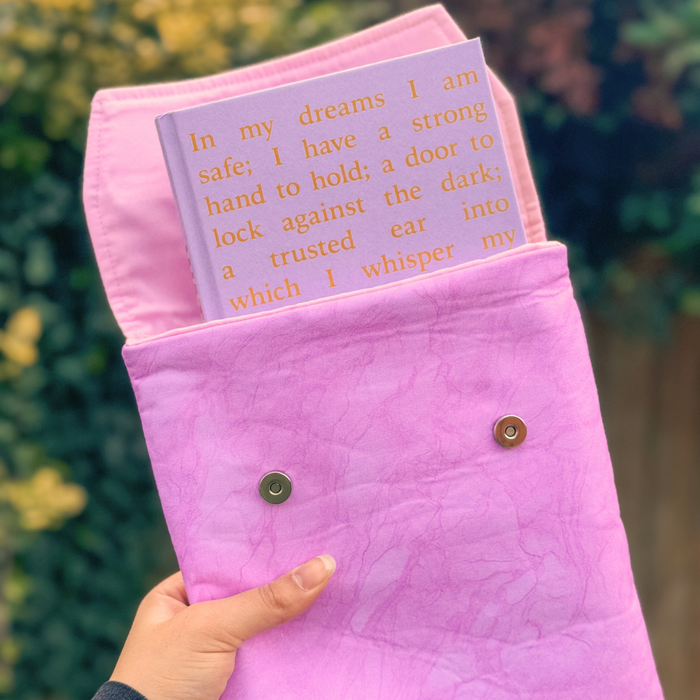 In my dreams I am
safe; I have a strong
hand to hold; a door to
lock against the dark;
a trusted ear into
which I whisper my